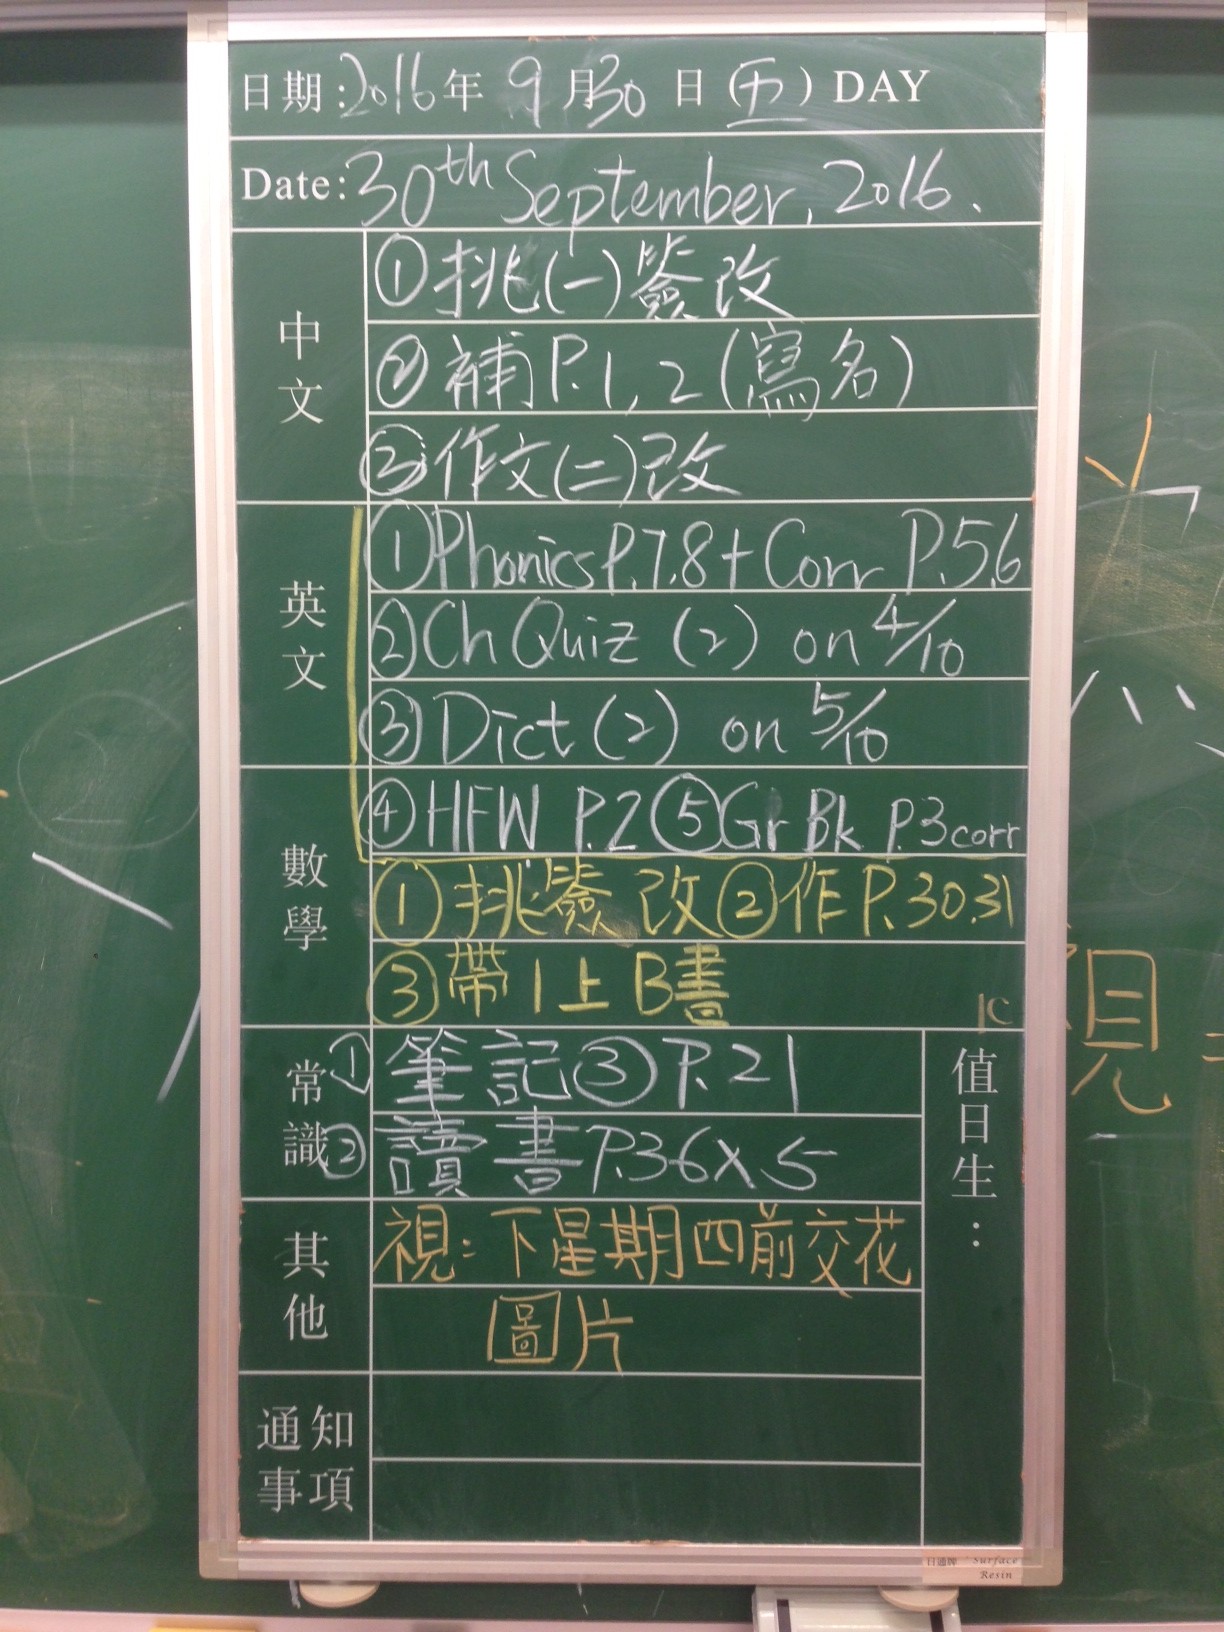 日期:2016年9月30日(五)DAY
Date:30th September, 2016.
中文
①挑(一)簽改
②補P.1,2(寫名)
③作文(二)改
英文
①Phonics P.7.8+Corr P.5.6
②Ch Quiz (2) on 4/10
③Dict (2) on 5/10
④HFW P.2⑤Gr Bk P.3corr
數學
①挑簽改②作P.30.31
③帶1上B書
1C
常識
①筆記③P.21
②讀書P.36x5
值日生:
其他
視:下星期四前交花
圖片
通知
事項
視
日通牌 Surface
Resin